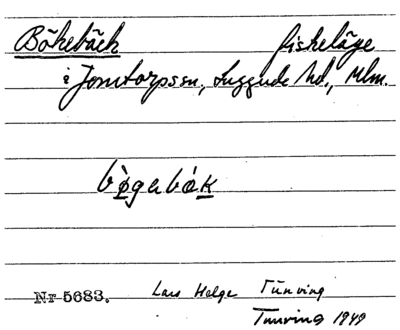 Bökebäck fiskeläge
i Jonstorpssn, Luggude hd., Mlm.
bø̀gabák
Nr 5683. Lars Helge Tunving
Tunving 1949